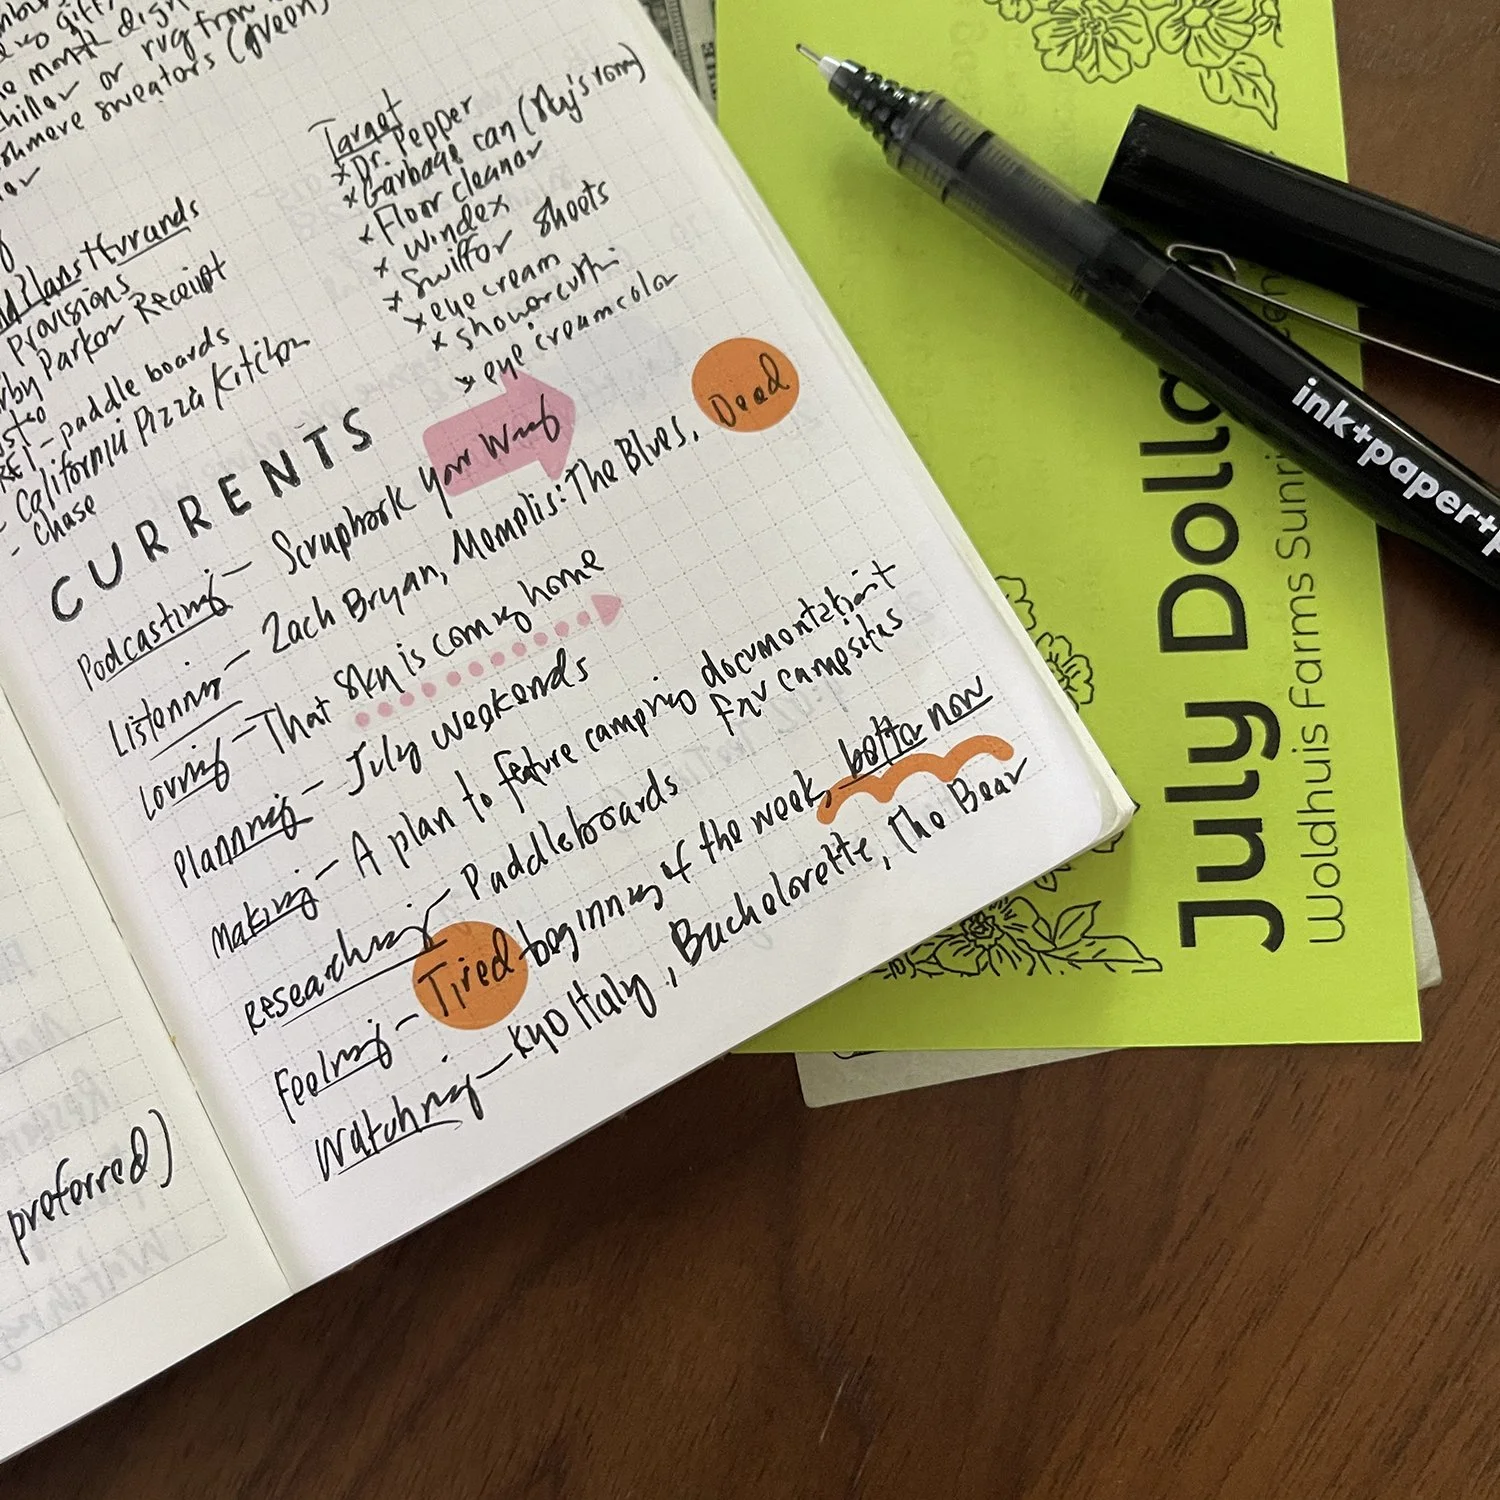 gift
month
chiller or rug from
cashmere sweaters (green)
Plans + Errands
Provisions
Parker Receipt
REI - paddle boards
- California Pizza Kitchen
- Chase
Target
x Dr. Pepper
x Garbage can
x Floor cleaner
x Windex
x Swiffer sheets
x eye cream
x shower curtain
x eye cream color
CURRENTS
Podcasting - Scrapbook Your Way
Listening - Zach Bryan, Memphis: The Blues, Dead
Loving - That sky is coming home
Planning - July weekends
Making - A plan to feature camping documentation +
for campsites
Researching - Paddleboards
Feeling - Tired beginning of the week, better now
Watching - Italy, Bachelorette, The Bear
preferred)
July Dolla
Woldhuis Farms Sunri
ink+paper+p